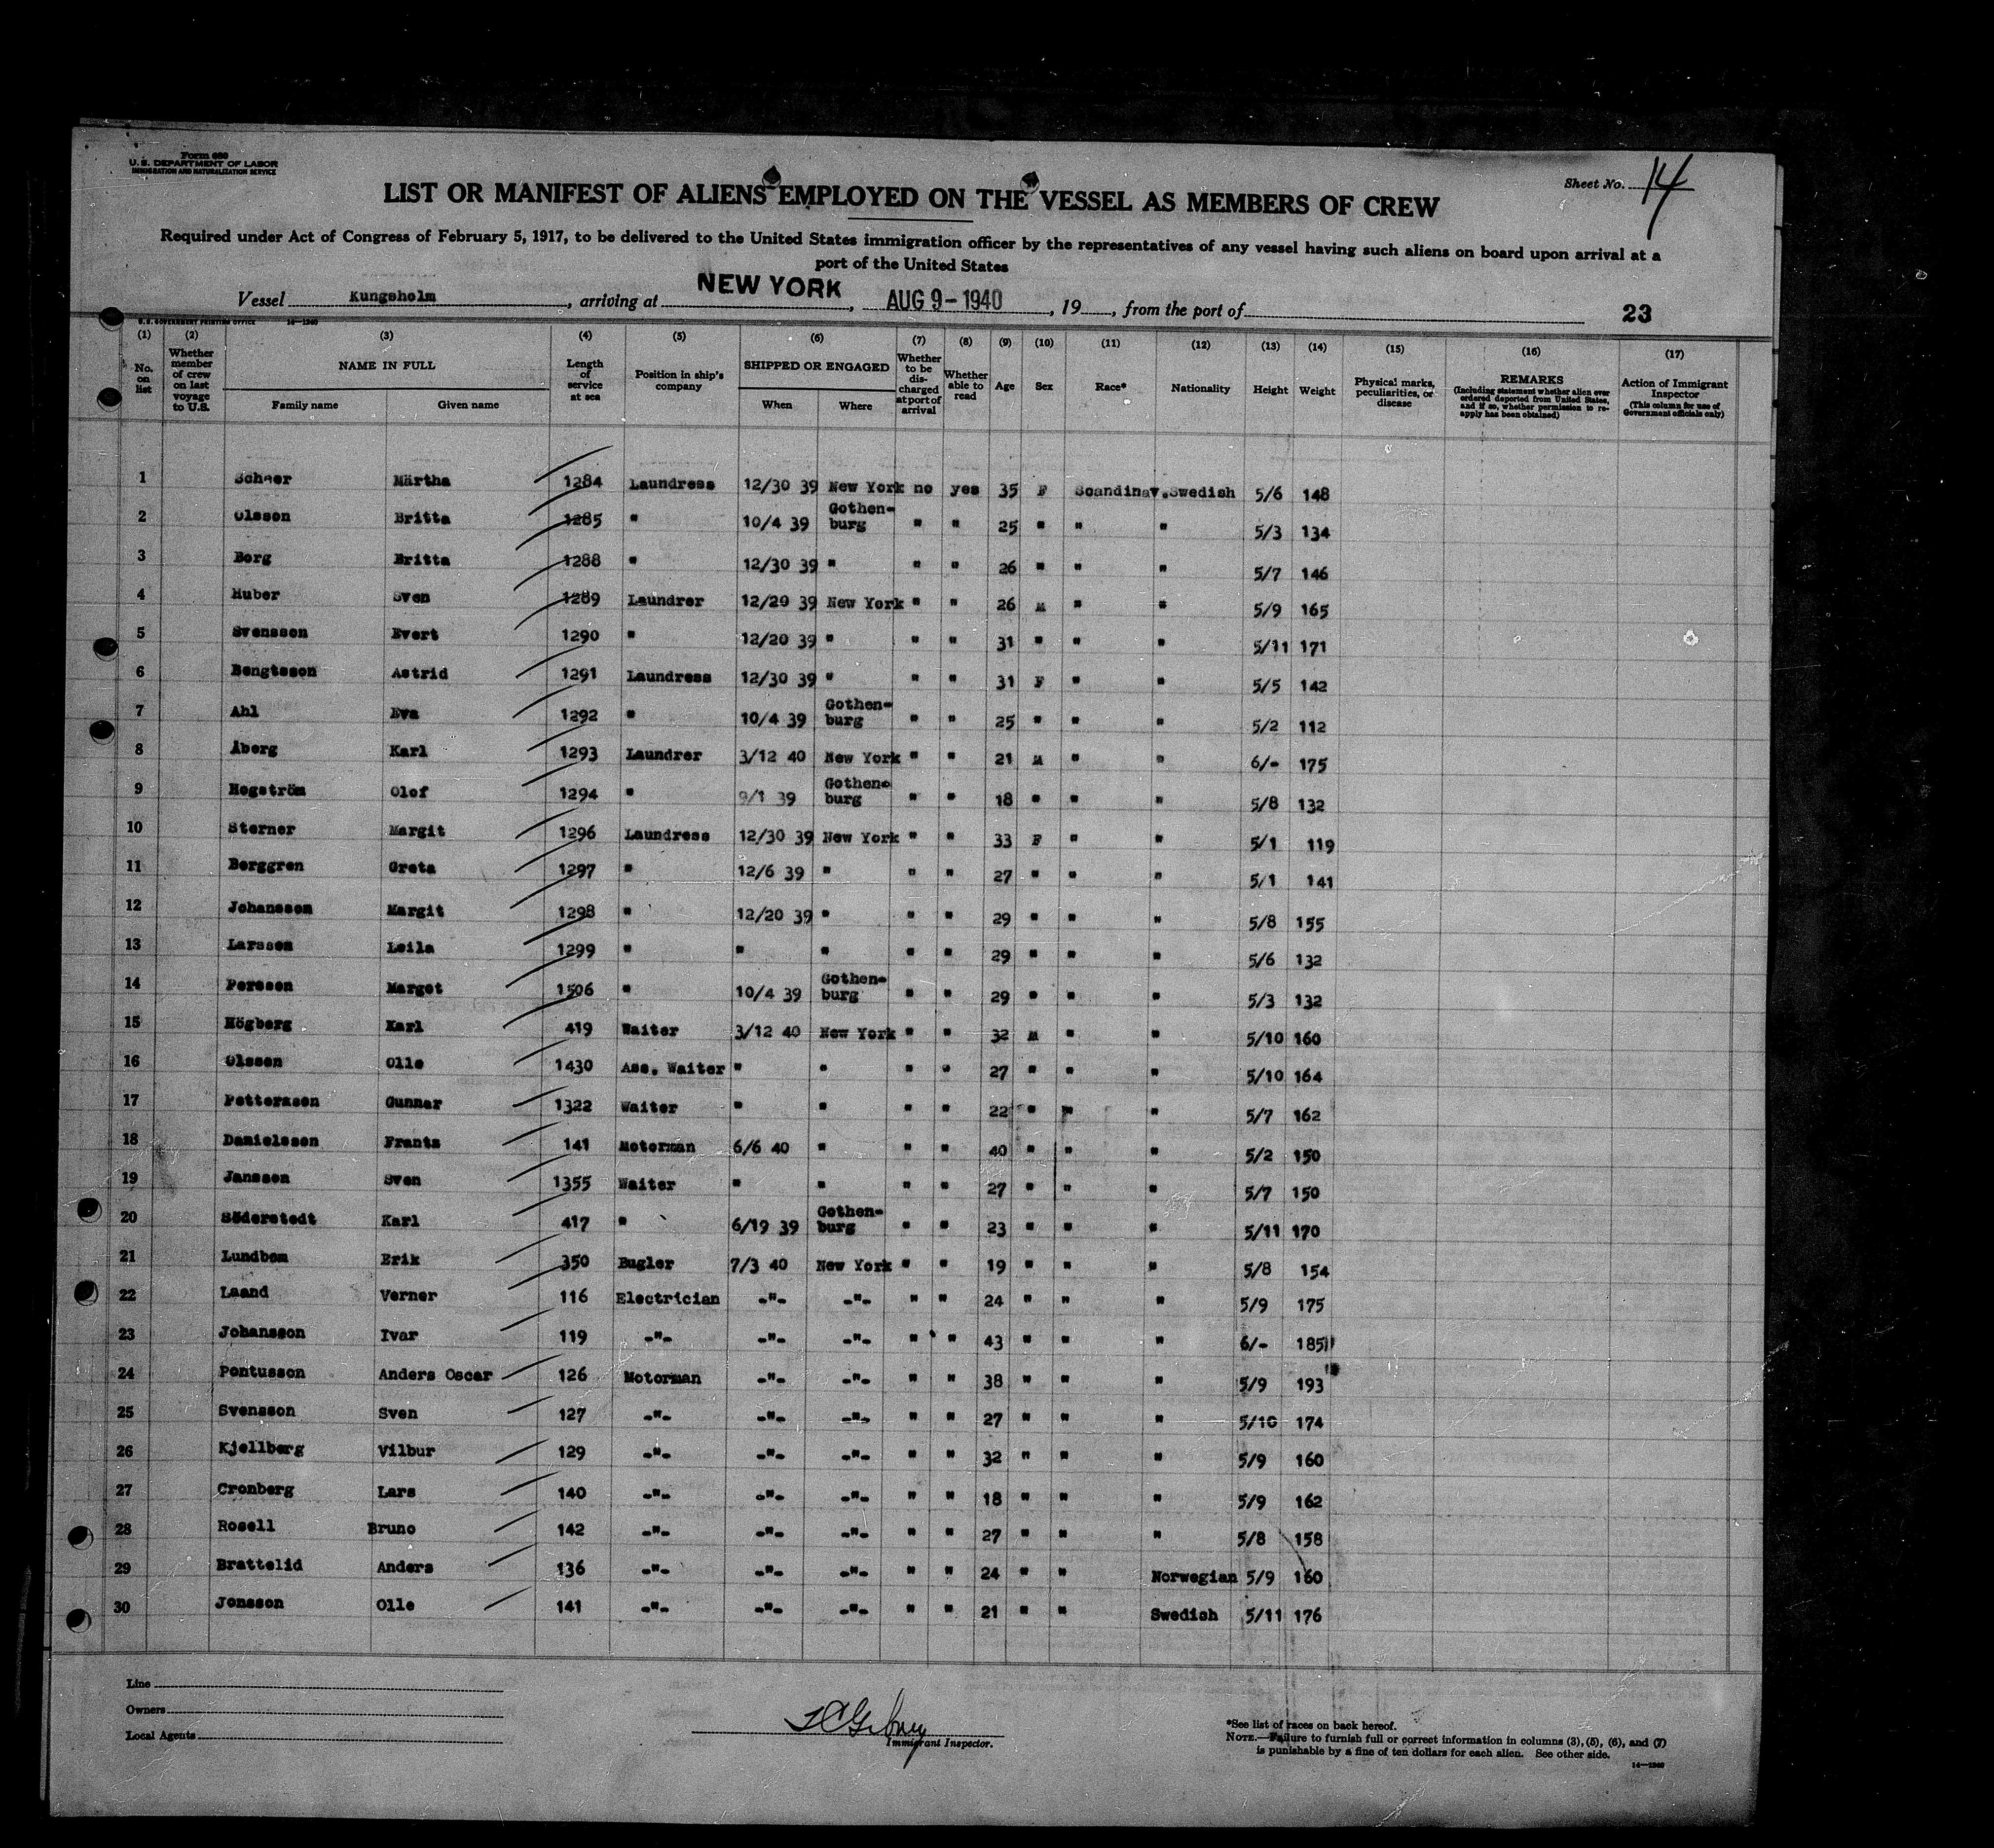 Form 680
U. S. DEPARTMENT OF LABOR
IMMIGRATION AND NATURALIZATION SERVICE
Sheet No. 14
LIST OR MANIFEST OF ALIENS EMPLOYED ON THE VESSEL AS MEMBERS OF CREW
Required under Act of Congress of February 5, 1917, to be delivered to the United States immigration officer by the representatives of any vessel having such aliens on board upon arrival at a
port of the United States
Vessel Kungsholm, arriving at NEW YORK, AUG 9 - 1940, 19, from the port of
23
U. S. GOVERNMENT PRINTING OFFICE 14—1240
(1) (2) (3) (4) (5) (6) (7) (8) (9) (10) (11) (12) (13) (14) (15) (16) (17)
No. on list
Whether member of crew on last voyage to U.S.
NAME IN FULL
Family name Given name
Length of service at sea
Position in ship's company
SHIPPED OR ENGAGED
When Where
Whether to be discharged at port of arrival
Whether able to read
Age
Sex
Race*
Nationality
Height
Weight
Physical marks, peculiarities, or disease
REMARKS
(Including statement whether alien ever ordered deported from United States, and if so, whether permission to re-apply has been obtained)
Action of Immigrant Inspector
(This column for use of Government officials only)
1 Scheer Märtha 1284 Laundress 12/30 39 New York no yes 35 F Scandinav. Swedish 5/6 148
2 Olsson Britta 1285 " 10/4 39 Gothen-burg " " 25 " " " 5/3 134
3 Borg Britta 1288 " 12/30 39 " " " 26 " " " 5/7 146
4 Huber Sven 1289 Laundrer 12/20 39 New York " " 26 M " " 5/9 165
5 Svensson Evert 1290 " 12/20 39 " " " 31 " " " 5/11 171
6 Bengtsson Astrid 1291 Laundress 12/30 39 " " " 31 F " " 5/5 142
7 Ahl Eva 1292 " 10/4 39 Gothen-burg " " 25 " " " 5/2 112
8 Åberg Karl 1293 Laundrer 3/12 40 New York " " 21 M " " 6/- 175
9 Hegström Olof 1294 " 9/1 39 Gothen-burg " " 18 " " " 5/8 132
10 Sterner Margit 1296 Laundress 12/30 39 New York " " 33 F " " 5/1 119
11 Berggren Greta 1297 " 12/6 39 " " " 27 " " " 5/1 141
12 Johansson Margit 1298 " 12/20 39 " " " 29 " " " 5/8 155
13 Larsson Leila 1299 " " " " " 29 " " " 5/6 132
14 Persson Margot 1506 " 10/4 39 Gothen-burg " " 29 " " " 5/3 132
15 Högberg Karl 419 Waiter 3/12 40 New York " " 32 M " " 5/10 160
16 Olsson Olle 1430 Ass. Waiter " " " " 27 " " " 5/10 164
17 Pettersson Gunnar 1322 Waiter " " " " 22 " " " 5/7 162
18 Danielsson Frants 141 Motorman 6/6 40 " " " 40 " " " 5/2 150
19 Jansson Sven 1355 Waiter " " " " 27 " " " 5/7 150
20 Söderstedt Karl 417 " 6/19 39 Gothen-burg " " 23 " " " 5/11 170
21 Lundbom Erik 350 Bugler 7/3 40 New York " " 19 " " " 5/8 154
22 Laand Verner 116 Electrician -"- -"- " " 24 " " " 5/9 175
23 Johansson Ivar 119 -"- -"- -"- " " 43 " " " 6/- 185
24 Pontusson Anders Oscar 126 Motorman -"- -"- " " 38 " " " 5/9 193
25 Svensson Sven 127 -"- -"- -"- " " 27 " " " 5/10 174
26 Kjellberg Vilbur 129 -"- -"- -"- " " 32 " " " 5/9 160
27 Cronberg Lars 140 -"- -"- -"- " " 18 " " " 5/9 162
28 Rosell Bruno 142 -"- -"- -"- " " 27 " " " 5/8 158
29 Brattelid Anders 136 -"- -"- -"- " " 24 " " Norwegian 5/9 160
30 Jonsson Olle 141 -"- -"- -"- " " 21 " " Swedish 5/11 176
Line
Owners
Local Agents
Immigrant Inspector.
*See list of races on back hereof.
NOTE.—Failure to furnish full or correct information in columns (3), (5), (6), and (7)
is punishable by a fine of ten dollars for each alien. See other side.
14—1240